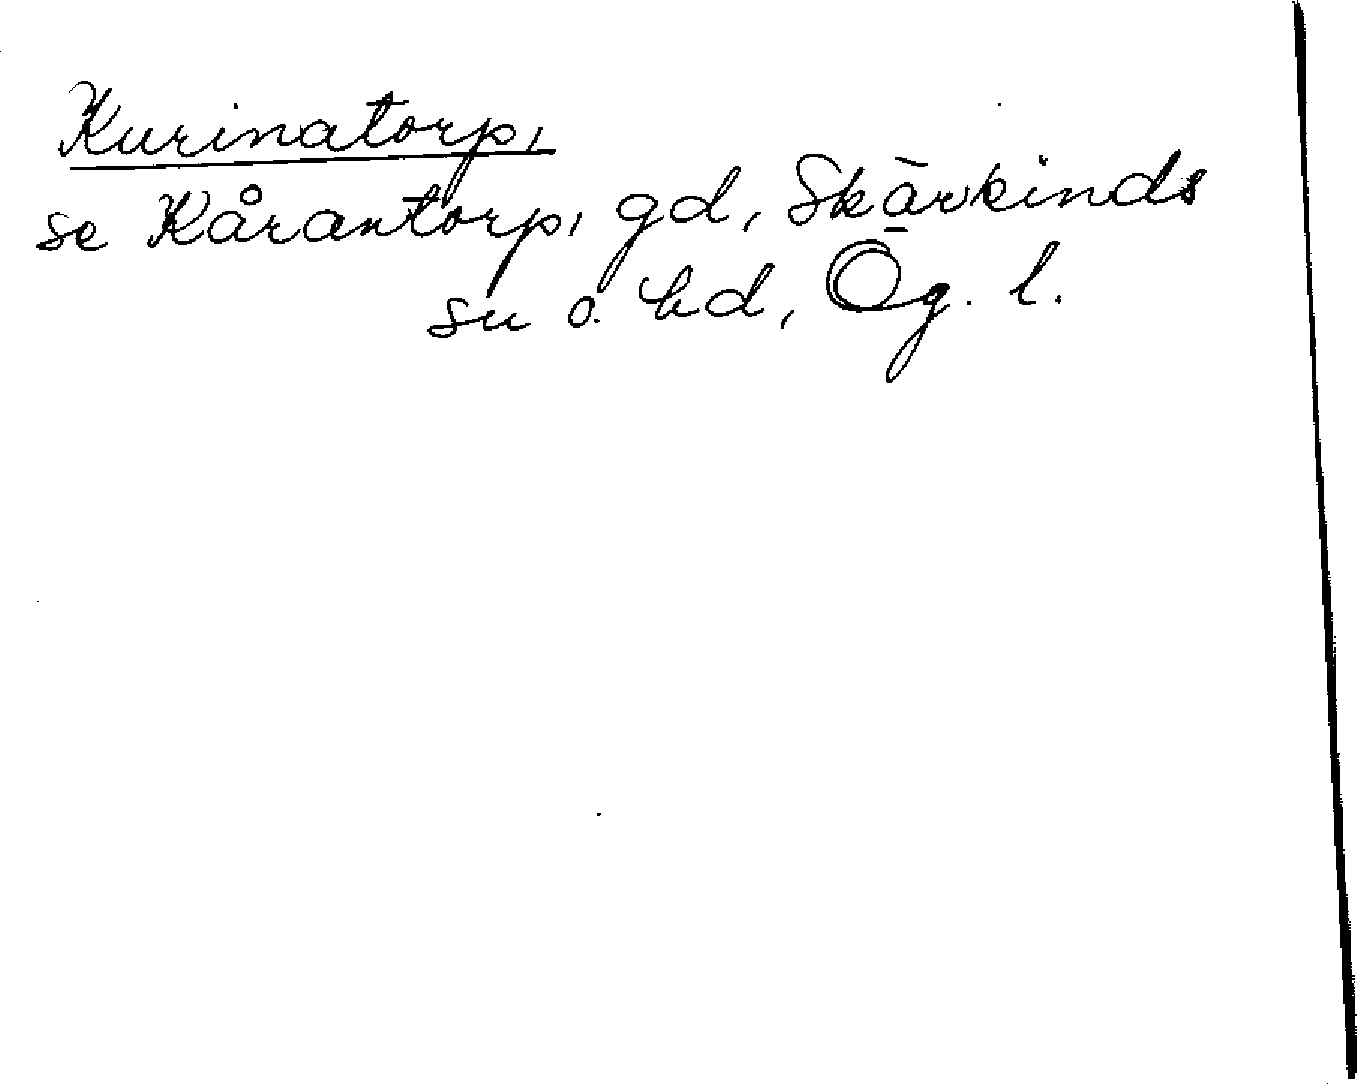 Kurinatorp,
se Kårantorp, gd, Skärkinds
sn o. hd, Ög. l.